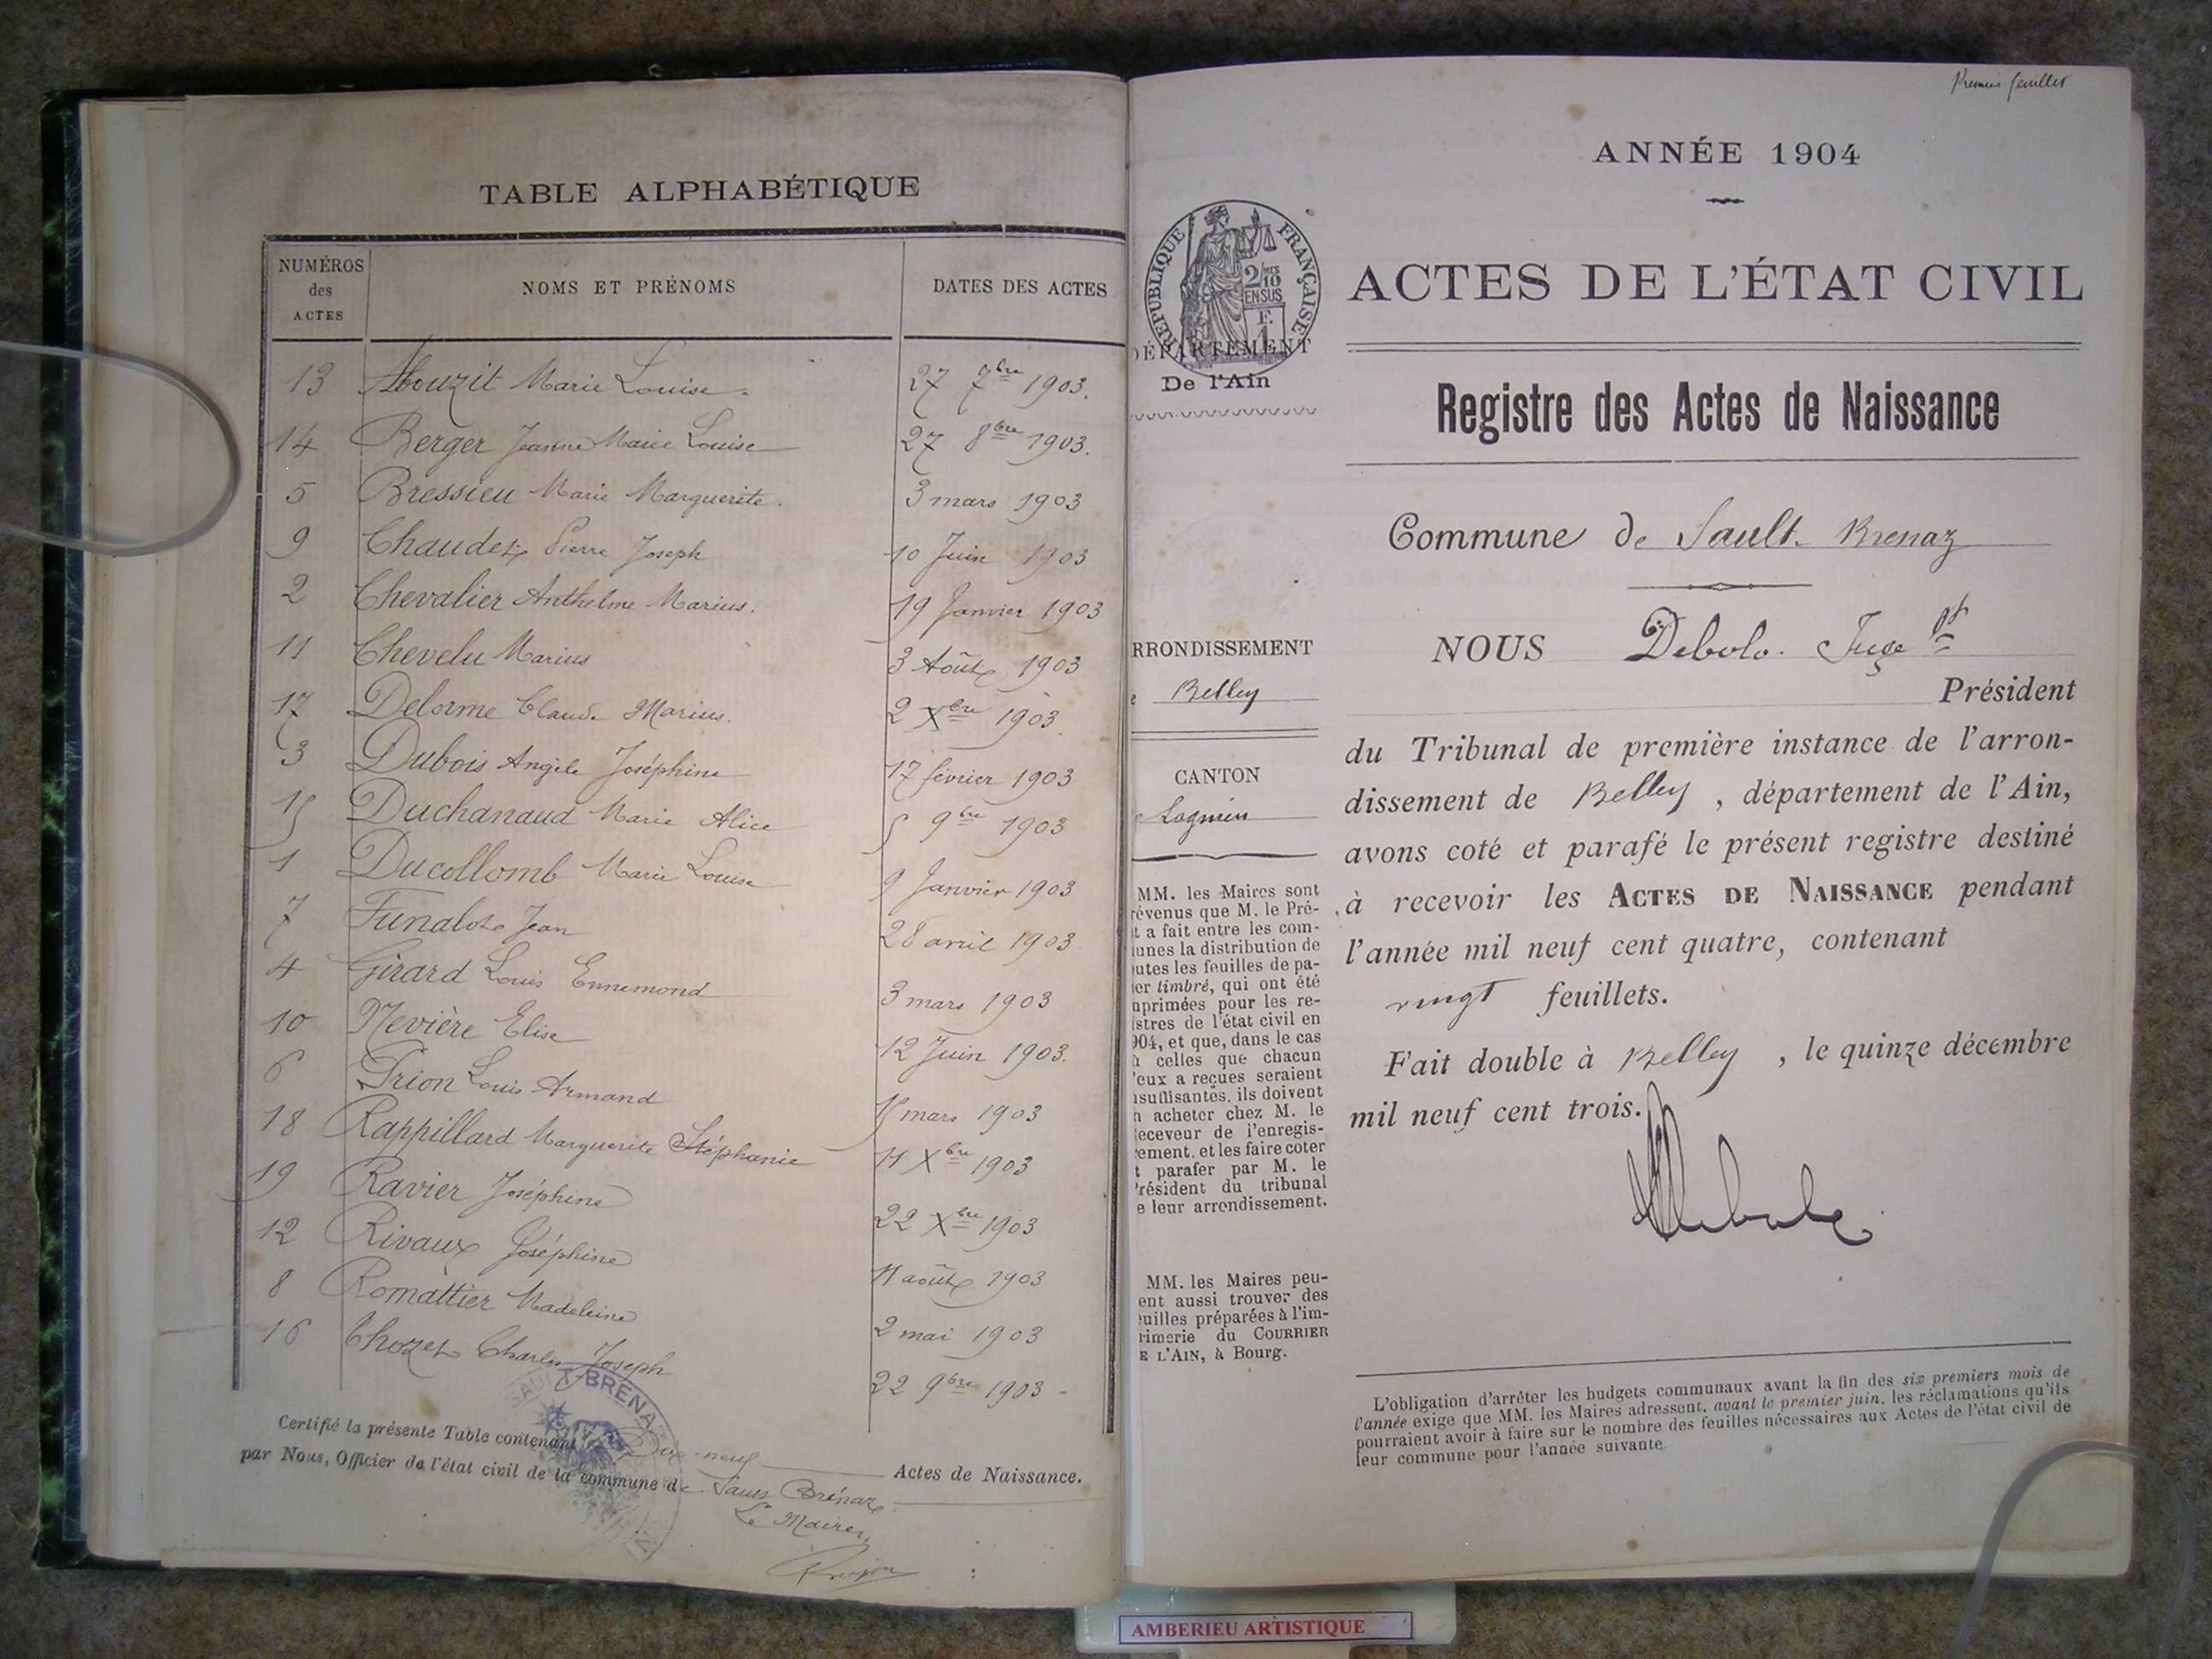 TABLE ALPHABÉTIQUE
NUMÉROS des ACTES
NOMS ET PRÉNOMS
DATES DES ACTES
13 Abouzit Marie Louise. 27 7bre 1903.
14 Berger Jeanne Marie Louise 27 8bre 1903.
5 Bressieu Marie Marguerite. 3 mars 1903
9 Chaudet Pierre Joseph 10 Juin 1903
2 Chevalier Anthelme Marius. 19 Janvier 1903
11 Chevelu Marius 3 Août 1903
17 Delorme Claude Marius. 2 Xbre 1903.
3 Dubois Angèle Joséphine 17 février 1903
15 Duchanaud Marie Alice 5 9bre 1903
1 Ducollomb Marie Louise 9 Janvier 1903
7 Funalot Jean 28 avril 1903
4 Girard Louis Ennemond 3 mars 1903
10 Nevière Elise 12 Juin 1903.
6 Prion Louis Armand 15 mars 1903
18 Rappillard Marguerite Stéphanie 11 Xbre 1903
19 Ravier Joséphine 22 Xbre 1903
12 Rivaux Joséphine 11 août 1903
8 Romattier Madeleine 2 mai 1903
16 Thozet Charles Joseph 22 9bre 1903 -
SAULT-BRENAZ
Certifié la présente Table contenant Dix-neuf Actes de Naissance.
par Nous, Officier de l'état civil de la commune de Sault Brénaz
Le Maire,
Premier feuillet
ANNÉE 1904
RÉPUBLIQUE FRANÇAISE
2/10 MES
EN SUS
F.
1
ACTES DE L'ÉTAT CIVIL
DÉPARTEMENT
De l'Ain
Registre des Actes de Naissance
Commune de Sault-Brenaz
RRONDISSEMENT
e Belley
CANTON
e Lagnieu
MM. les Maires sont
révenus que M. le Pré-
t a fait entre les com-
unes la distribution de
utes les feuilles de pa-
er timbré, qui ont été
mprimées pour les re-
istres de l'état civil en
904, et que, dans le cas
ù celles que chacun
'eux a reçues seraient
nsuffisantes, ils doivent
n acheter chez M. le
eceveur de l'enregis-
ement, et les faire coter
t parafer par M. le
résident du tribunal
e leur arrondissement.
MM. les Maires peu-
ent aussi trouver des
euilles préparées à l'im-
rimerie du COURRIER
E L'AIN, à Bourg.
NOUS Debolo. Juge pt
Président
du Tribunal de première instance de l'arron-
dissement de Belley, département de l'Ain,
avons coté et parafé le présent registre destiné
à recevoir les ACTES DE NAISSANCE pendant
l'année mil neuf cent quatre, contenant
vingt feuillets.
Fait double à Belley, le quinze décembre
mil neuf cent trois.
L'obligation d'arrêter les budgets communaux avant la fin des six premiers mois de
l'année exige que MM. les Maires adressent, avant le premier juin, les réclamations qu'ils
pourraient avoir à faire sur le nombre des feuilles nécessaires aux Actes de l'état civil de
leur commune pour l'année suivante.
AMBERIEU ARTISTIQUE